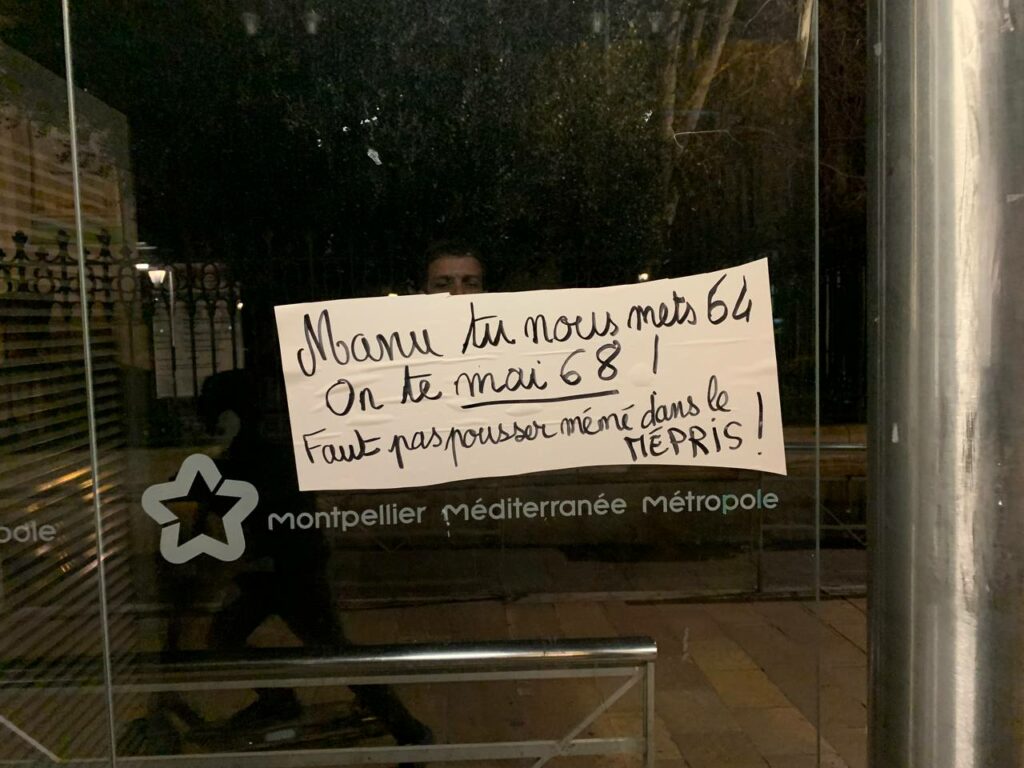 Manu tu nous mets 64
On te mai 68 !
Faut pas pousser mémé dans le
MEPRIS !
montpellier méditerranée métropole
pole